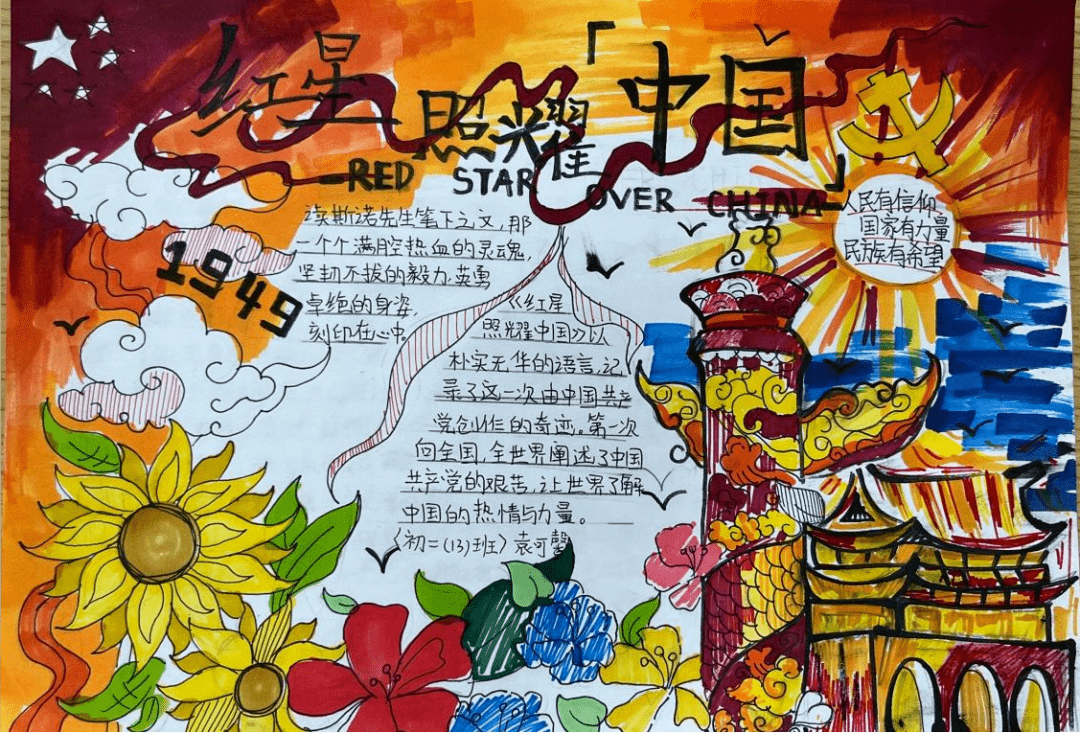 红星照耀「中国」
—RED STAR OVER CHINA—
人民有信仰
国家有力量
民族有希望
1949
读斯诺先生笔下之文,那
一个个满腔热血的灵魂,
坚韧不拔的毅力,英勇
卓绝的身姿,
刻印在心中。
《红星
照耀中国》以
朴实无华的语言,记
录了这一次由中国共产
党创作的奇迹。第一次
向全国,全世界阐述了中国
共产党的艰苦,让世界了解
中国的热情与力量。
〈初二(13)班〉袁可馨